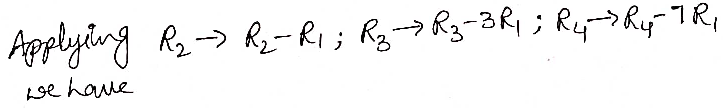 Applying R₂ → R₂ - R₁ ; R₃ → R₃ - 3R₁ ; R₄ → R₄ - 7R₁
we have